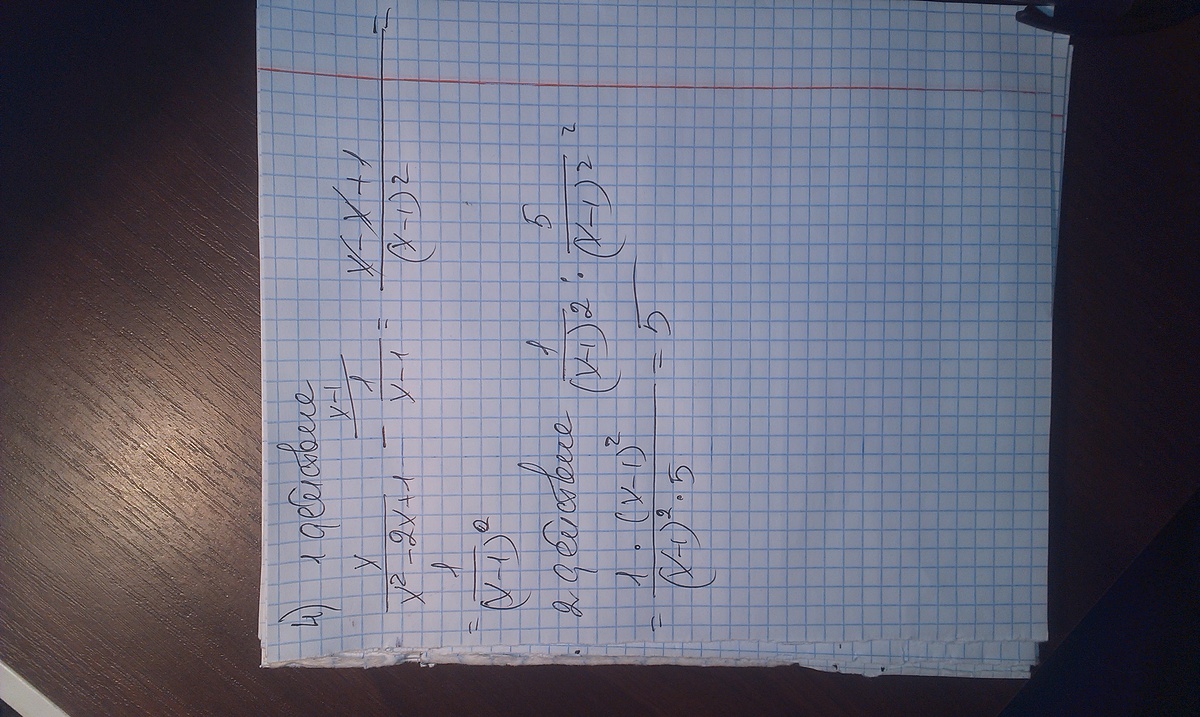 4) 1 действие
x/(x²-2x+1) - 1/(x-1) (x-1 = (x-x+1)/(x-1)² =
= 1/(x-1)²
2 действие 1/(x-1)² : 5/(x-1)² =
= 1·(x-1)²/(x-1)²·5 = /5